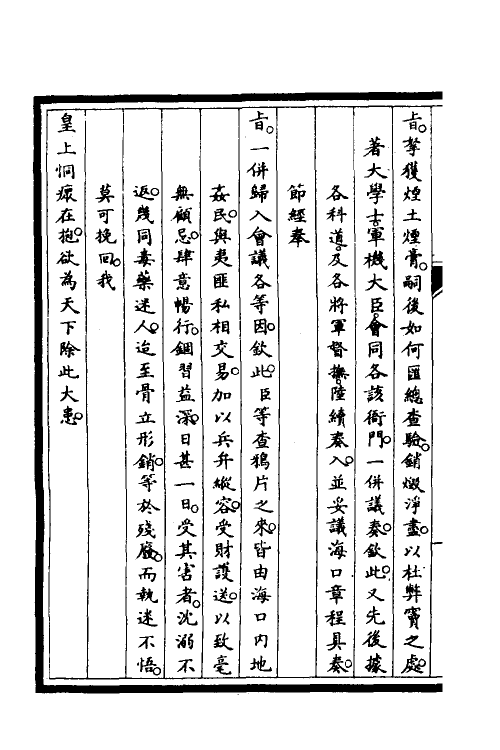 旨。拏獲煙土煙膏。嗣後如何匯總查驗。銷燬淨盡。以杜弊竇之處。
著大學士軍機大臣。會同各該衙門。一併議奏。欽此。又先後據
各科道。及各將軍督撫。陸續奏入。並妥議海口章程具奏。
節經奉
旨。一併歸入會議各等因。欽此。臣等查鴉片之來。皆由海口內地
姦民。與夷匪私相交易。加以兵弁縱容。受財護送。以致毫
無顧忌。肆意暢行。錮習益深。日甚一日。受其害者。沈溺不
返。幾同毒藥迷人。迨至骨立形銷。等於殘廢。而執迷不悟。
莫可挽回。我
皇上恫瘝在抱。欲為天下除此大患。